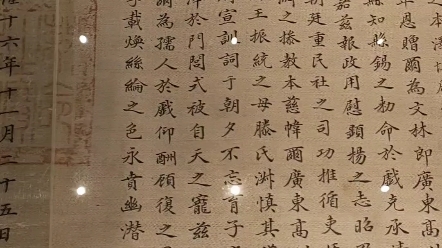 年恩贈爾為文林郎廣東高
縣知縣錫之勅命於戲克承清
茲報政用慰顯揚之志昭
廷重民社之司功推循吏
之教本慈幃爾廣東高
王振統之母滕氏淑慎其
宣訓詞于朝夕不忘育子
於門閭式被自天之寵茲
爾為孺人於戲仰酬顧復之
載煥絲綸之色永賁幽潛
十六年十一月二十五日